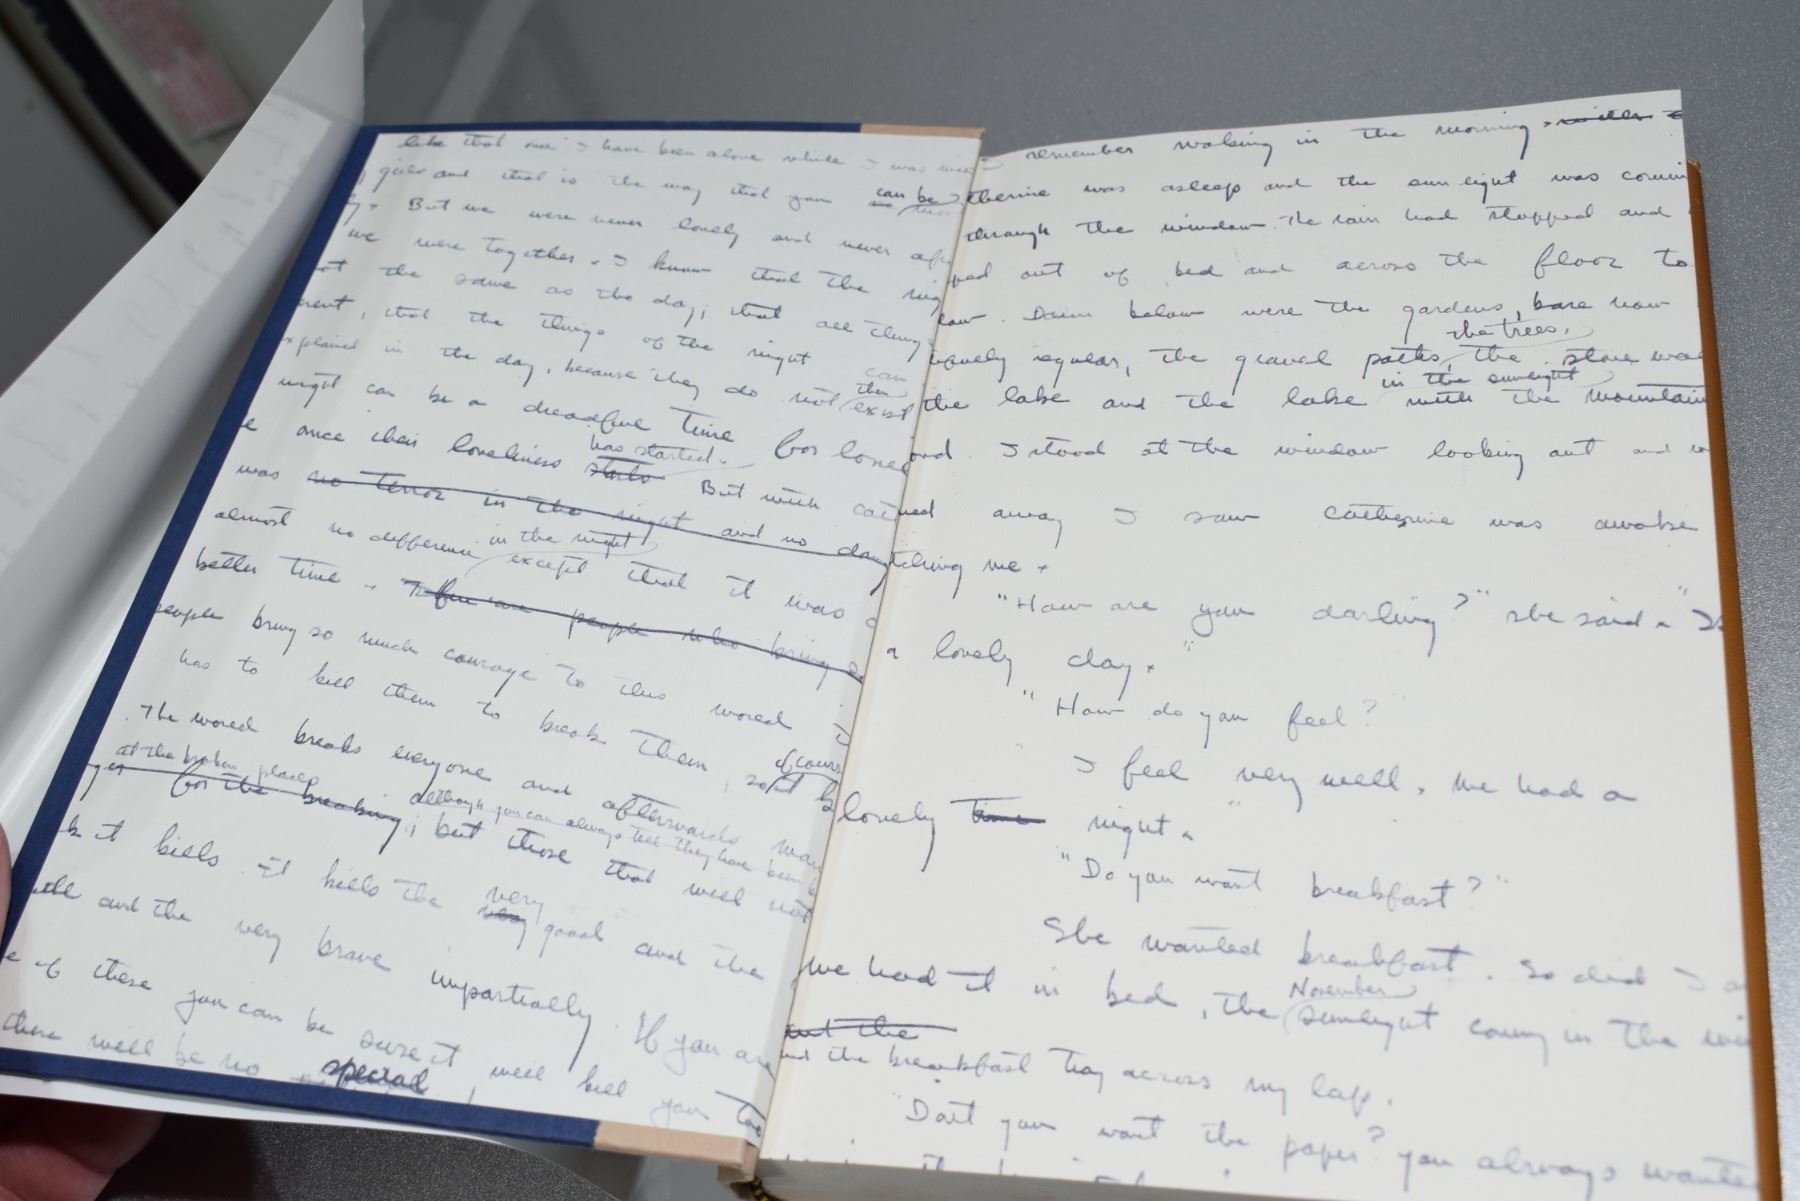 like that once I have been alone while I was with
girls and that is the way that you can be
But we were never lonely and never afr
we were together. I know that the nig
ot the same as the day; that all things
erent, that the things of the night can
xplained in the day, because they do not then exist
night can be a dreadful time for lonel
e once their loneliness starts has started. But with cat
was no terror in the night and no dang
almost no difference in the night except that it was a
better time. few are people who bring s
people bring so much courage to this world
has to kill them to break them, so of course it k
. The world breaks everyone and afterwards man
at the broken places
for the breaking although you can always tell they have been b
; but those that will not
k it kills. It kills the very very good and the
tle and the very brave impartially. If you are
e of these you can be sure it will kill you too
there will be no special
I remember waking in the morning.
therine was asleep and the sunlight was comin
through the window. The rain had stopped and
ped out of bed and across the floor to
dow. Down below were the gardens, bare now
the trees,
regular, the gravel paths, the stone wal
in the sunlight
the lake and the lake with the mountain
ond. I stood at the window looking out and w
ned away I saw Catherine was awake
tching me.
"How are you darling?" she said. "Is
a lovely day."
"How do you feel?"
I feel very well. We had a
lovely time night."
"Do you want breakfast?"
She wanted breakfast. So did I a
we had it in bed, the November sunlight coming in the win
out the
nd the breakfast tray across my lap.
"Don't you want the paper? You always wante